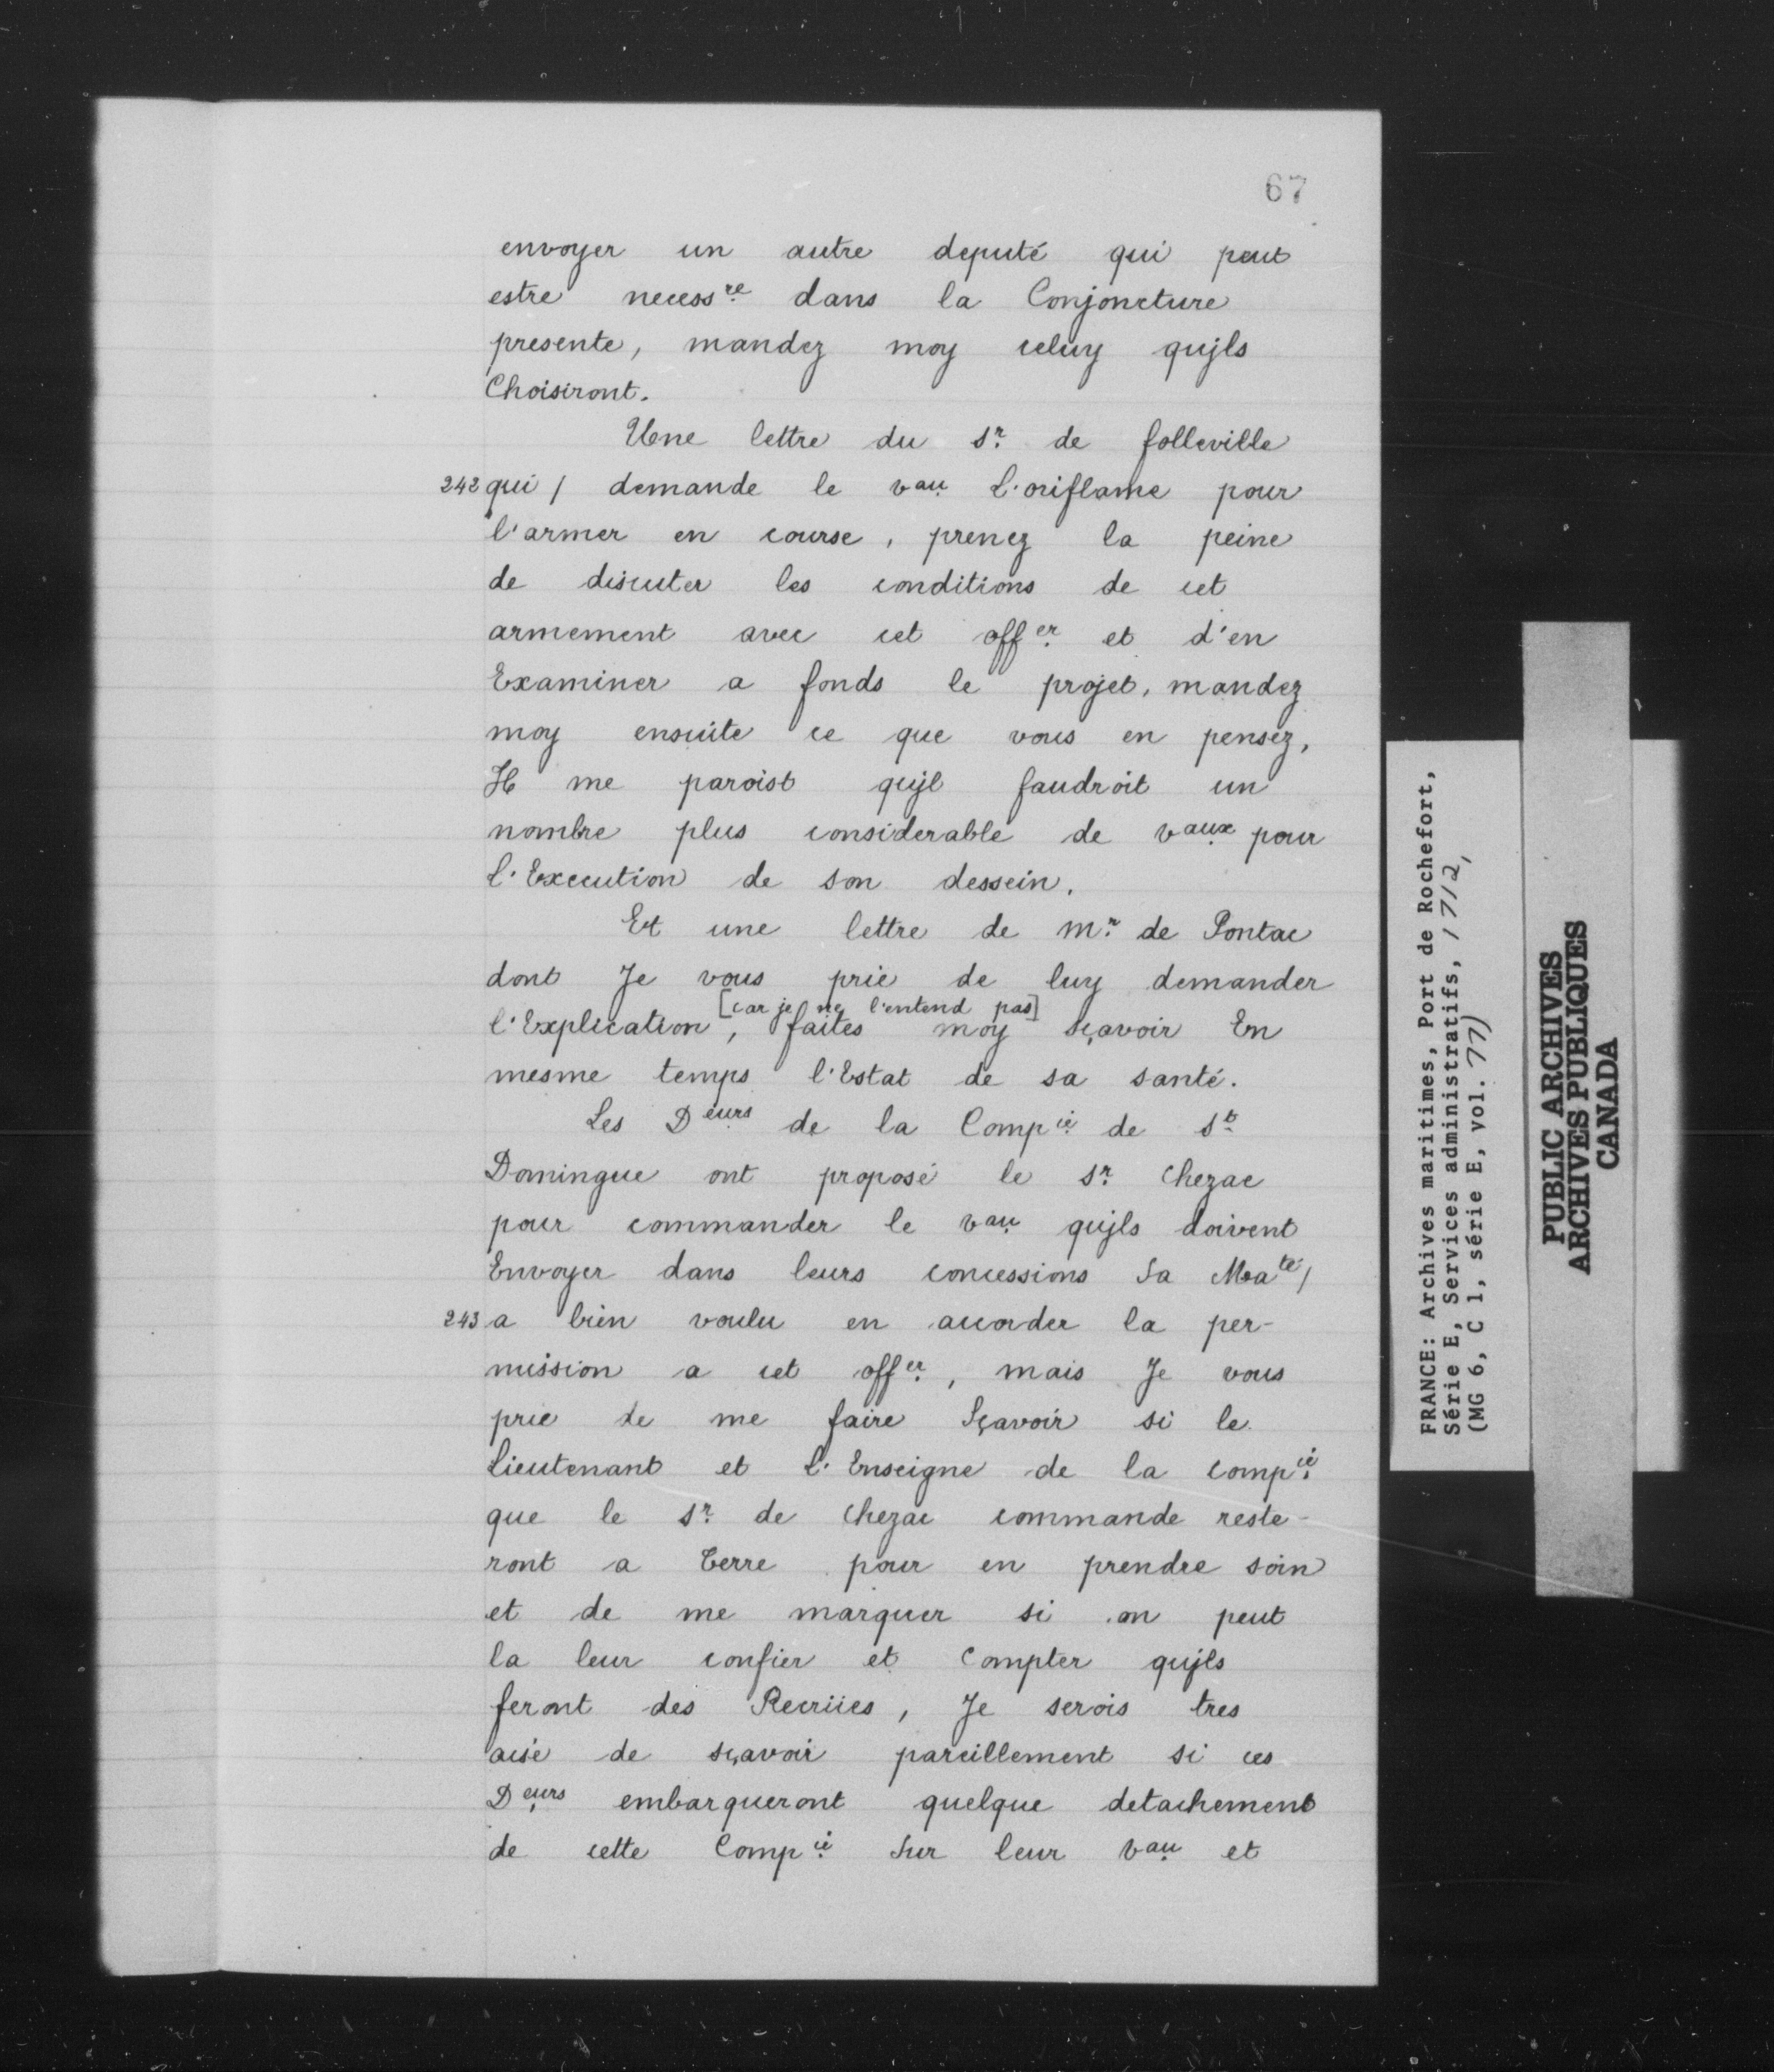 67
envoyer un autre deputé qui peut
estre necess.re dans la Conjoncture
presente, mandez moy celuy qujls
Choisiront.
Une lettre du s.r de folleville
242 qui / demande le v.au L'oriflame pour
l'armer en course, prenez la peine
de discuter les conditions de cet
armement avec cet off.er et d'en
Examiner a fonds le projet, mandez
moy ensuite ce que vous en pensez,
Il me paroist qujl faudroit un
nombre plus considerable de v.aux pour
l'Execution de son dessein.
Et une lettre de m.r de Pontac
dont Je vous prie de luy demander
[car je ne l'entend pas]
l'Explication, faites moy sçavoir En
mesme temps l'Estat de sa santé.
Les D.eurs de la Comp.ie de s.t
Domingue ont proposé le s.r Chezac
pour commander le v.au qujls doivent
Envoyer dans leurs concessions Sa Ma.té /
243 a bien voulu en accorder la per-
mission a cet off.er, mais Je vous
prie de me faire Sçavoir si le
Lieutenant et L'Enseigne de la comp.ie
que le s.r de Chezac commande reste-
ront a Terre pour en prendre soin
et de me marquer si on peut
la leur confier et Compter qujls
feront des Recriies, Je serois tres
aise de sçavoir pareillement si ces
D.eurs embarqueront quelque detachement
de cette Comp.ie Sur leur v.au et
FRANCE: Archives maritimes, Port de Rochefort,
Série E, Services administratifs, 1712,
(MG 6, C 1, série E, vol. 77)
PUBLIC ARCHIVES
ARCHIVES PUBLIQUES
CANADA